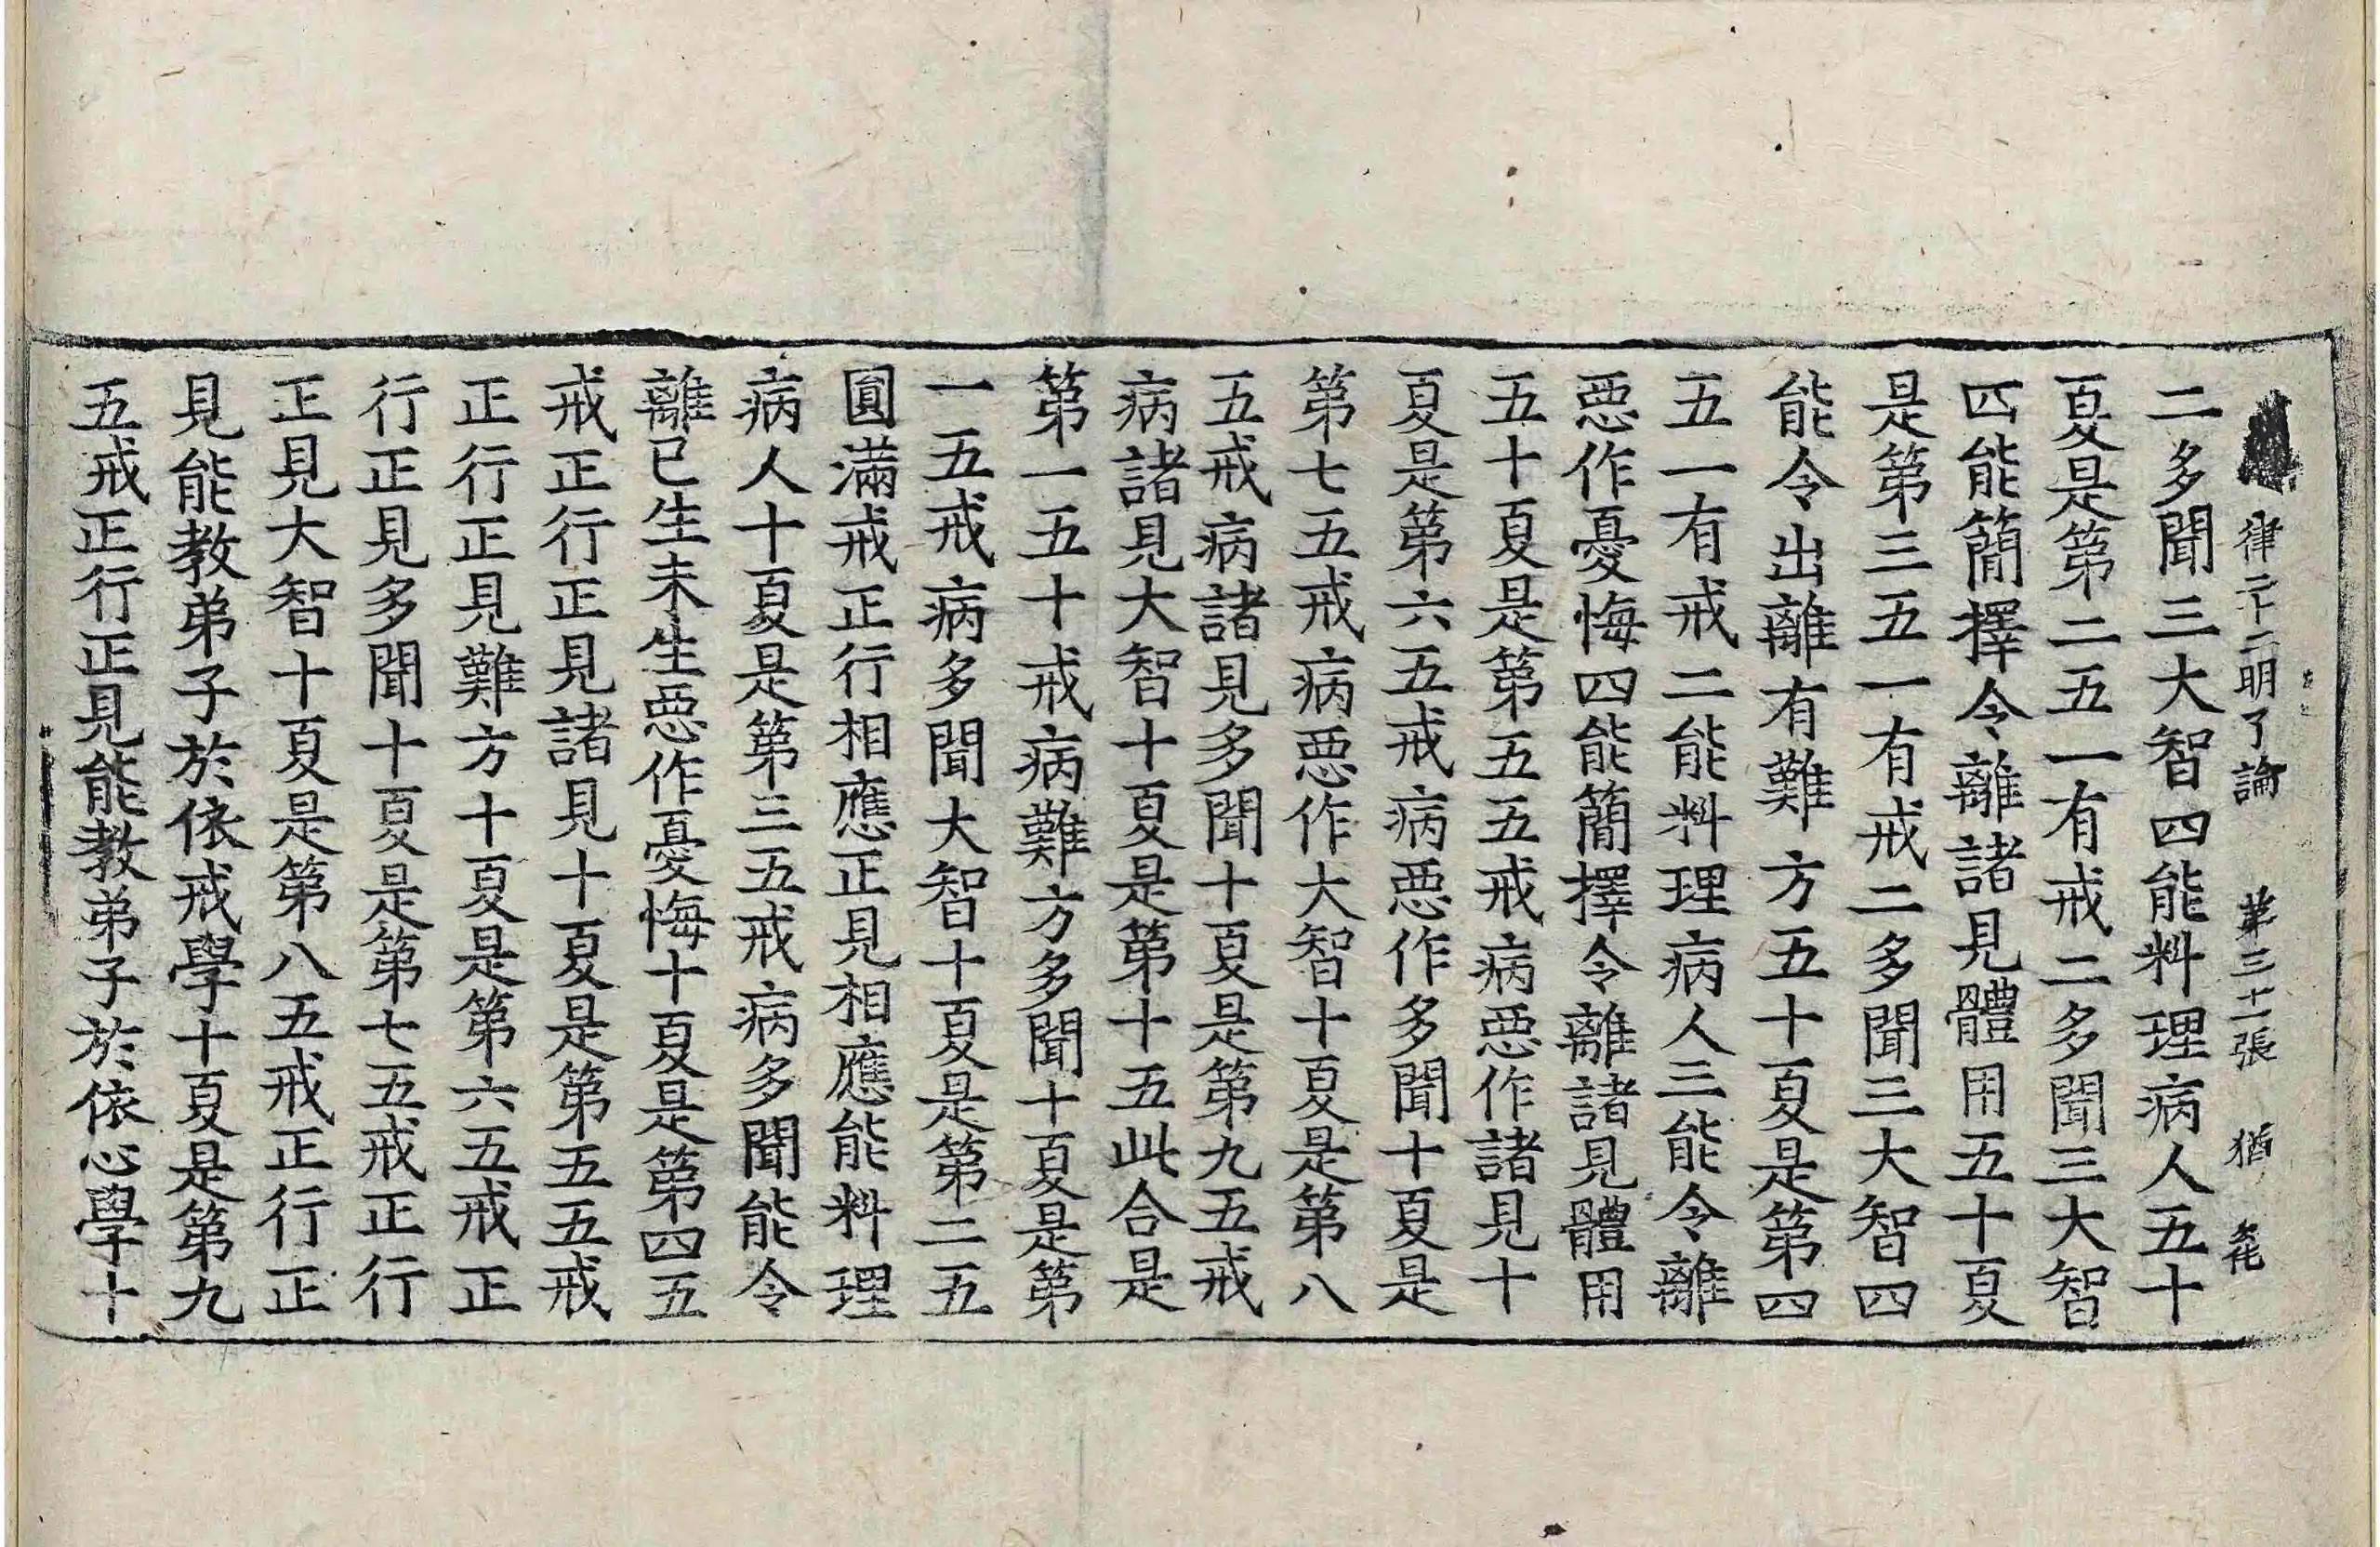 律二十二明了論　第三十一張　猶
二多聞三大智四能料理病人五十
夏是第二五一有戒二多聞三大智
四能簡擇令離諸見體用五十夏
是第三五一有戒二多聞三大智四
能令出離有難方五十夏是第四
五一有戒二能料理病人三能令離
惡作憂悔四能簡擇令離諸見體用
五十夏是第五五戒病惡作諸見十
夏是第六五戒病惡作多聞十夏是
第七五戒病惡作大智十夏是第八
五戒病諸見多聞十夏是第九五戒
病諸見大智十夏是第十五此合是
第一五十戒病難方多聞十夏是第
一五戒病多聞大智十夏是第二五
圓滿戒正行相應正見相應能料理
病人十夏是第三五戒病多聞能令
離已生未生惡作憂悔十夏是第四五
戒正行正見諸見十夏是第五五戒
正行正見難方十夏是第六五戒正
行正見多聞十夏是第七五戒正行
正見大智十夏是第八五戒正行正
見能教弟子於依戒學十夏是第九
五戒正行正見能教弟子於依心學十